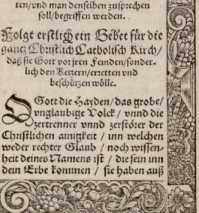 ten/vnd man denselben zusprechen
soll/begriffen werden.
Volgt erstlich ein Gebet für die
gantz Christlich Catholisch Kirch/
daß sie Gott vor jren Feinden/sonder-
lich den Ketzern/erretten vnd
beschützen wölle.
O Gott die Hayden/das grobe/
vnglaubige Volck/vnnd die
zertrenner vnnd zerstörer der
Christlichen ainigkeit/inn welchen
weder rechter Glaub/noch wissen-
heit deines Namens ist/die sein inn
dein Erbe kommen/sie haben auß